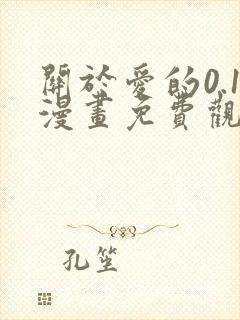 關於愛的0.1
漫畫免費觀
孔笙